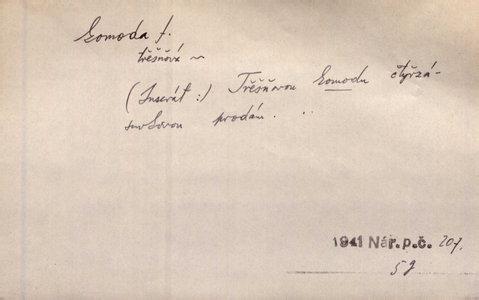 komoda f.
třešňová ~
(Inserát:) Třešňovou komodu čtyřzá-
suvkovou prodám. ..
1941 Nár.p.č. 207,
5 g